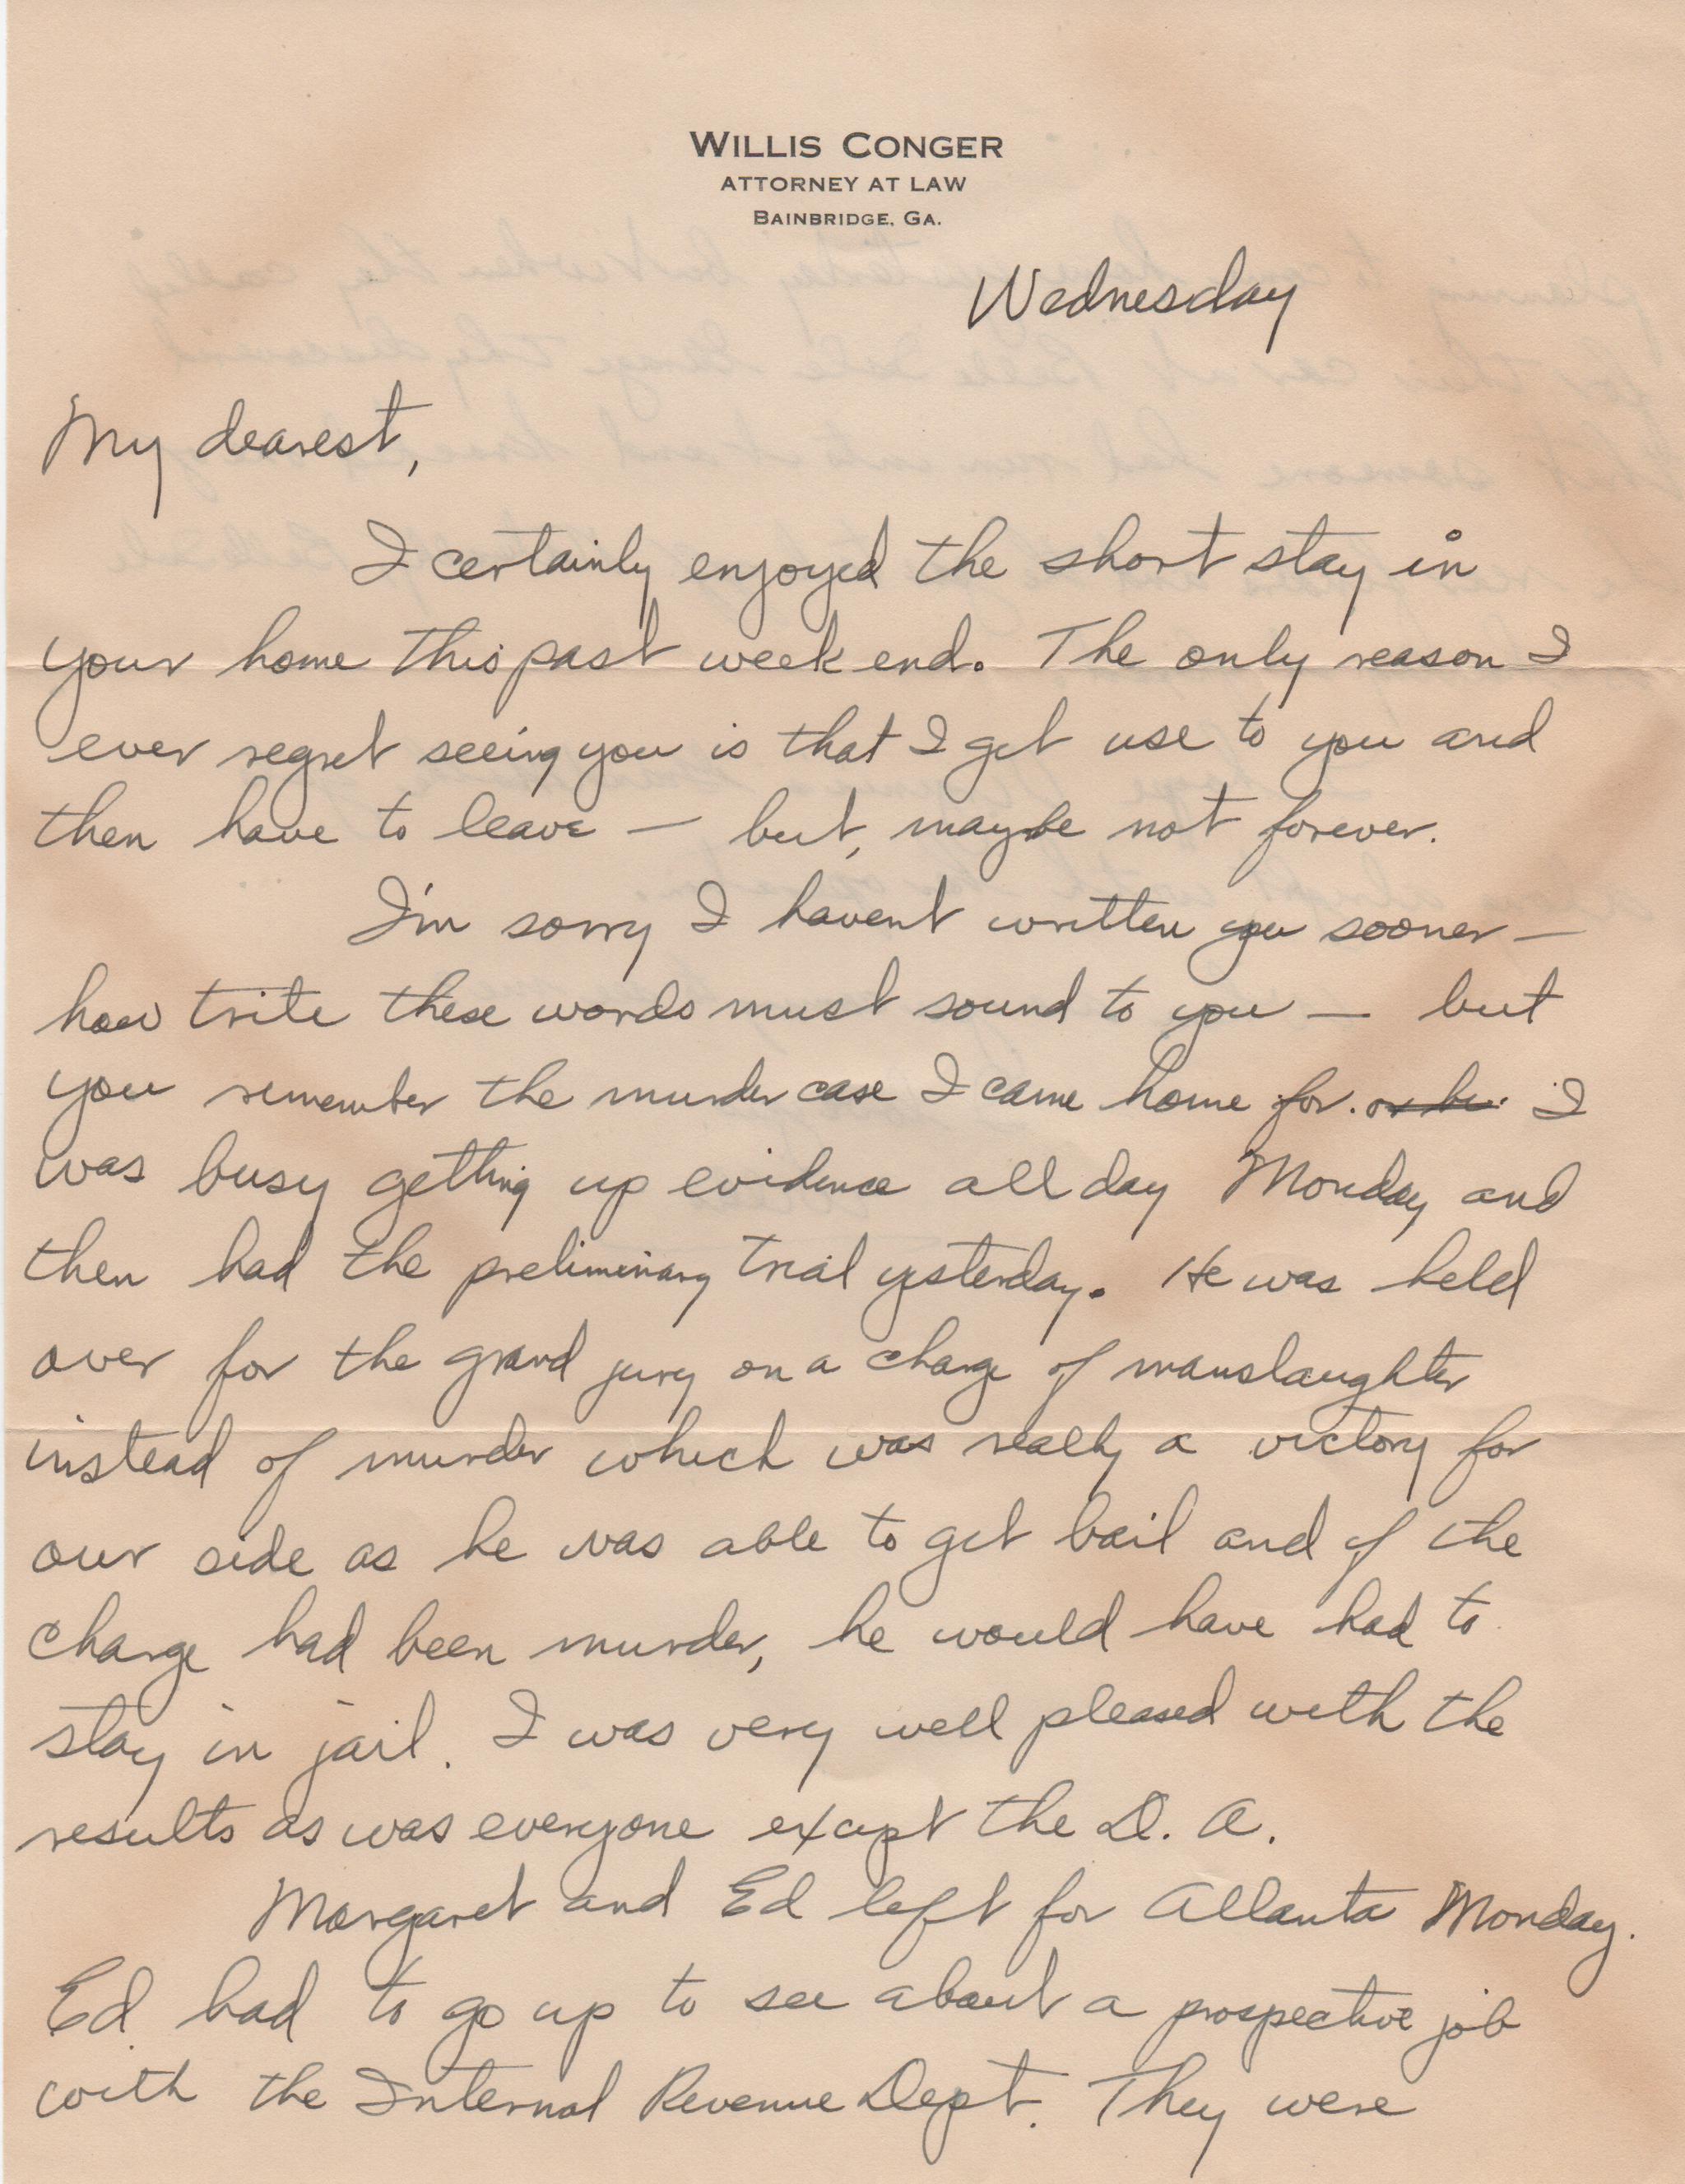 WILLIS CONGER
ATTORNEY AT LAW
BAINBRIDGE, GA.
Wednesday
My dearest,
I certainly enjoyed the short stay in
your home this past week end. The only reason I
ever regret seeing you is that I get use to you and
then have to leave — but, maybe not forever.
I'm sorry I havent written you sooner —
how trite these words must sound to you — but
you remember the murder case I came home for. I
was busy getting up evidence all day Monday and
then had the preliminary trial yesterday. He was held
over for the grand jury on a charge of manslaughter
instead of murder which was really a victory for
our side as he was able to get bail and if the
charge had been murder, he would have had to
stay in jail. I was very well pleased with the
results as was everyone except the D. A.
Margaret and Ed left for Atlanta Monday.
Ed had to go up to see about a prospective job
with the Internal Revenue Dept. They were